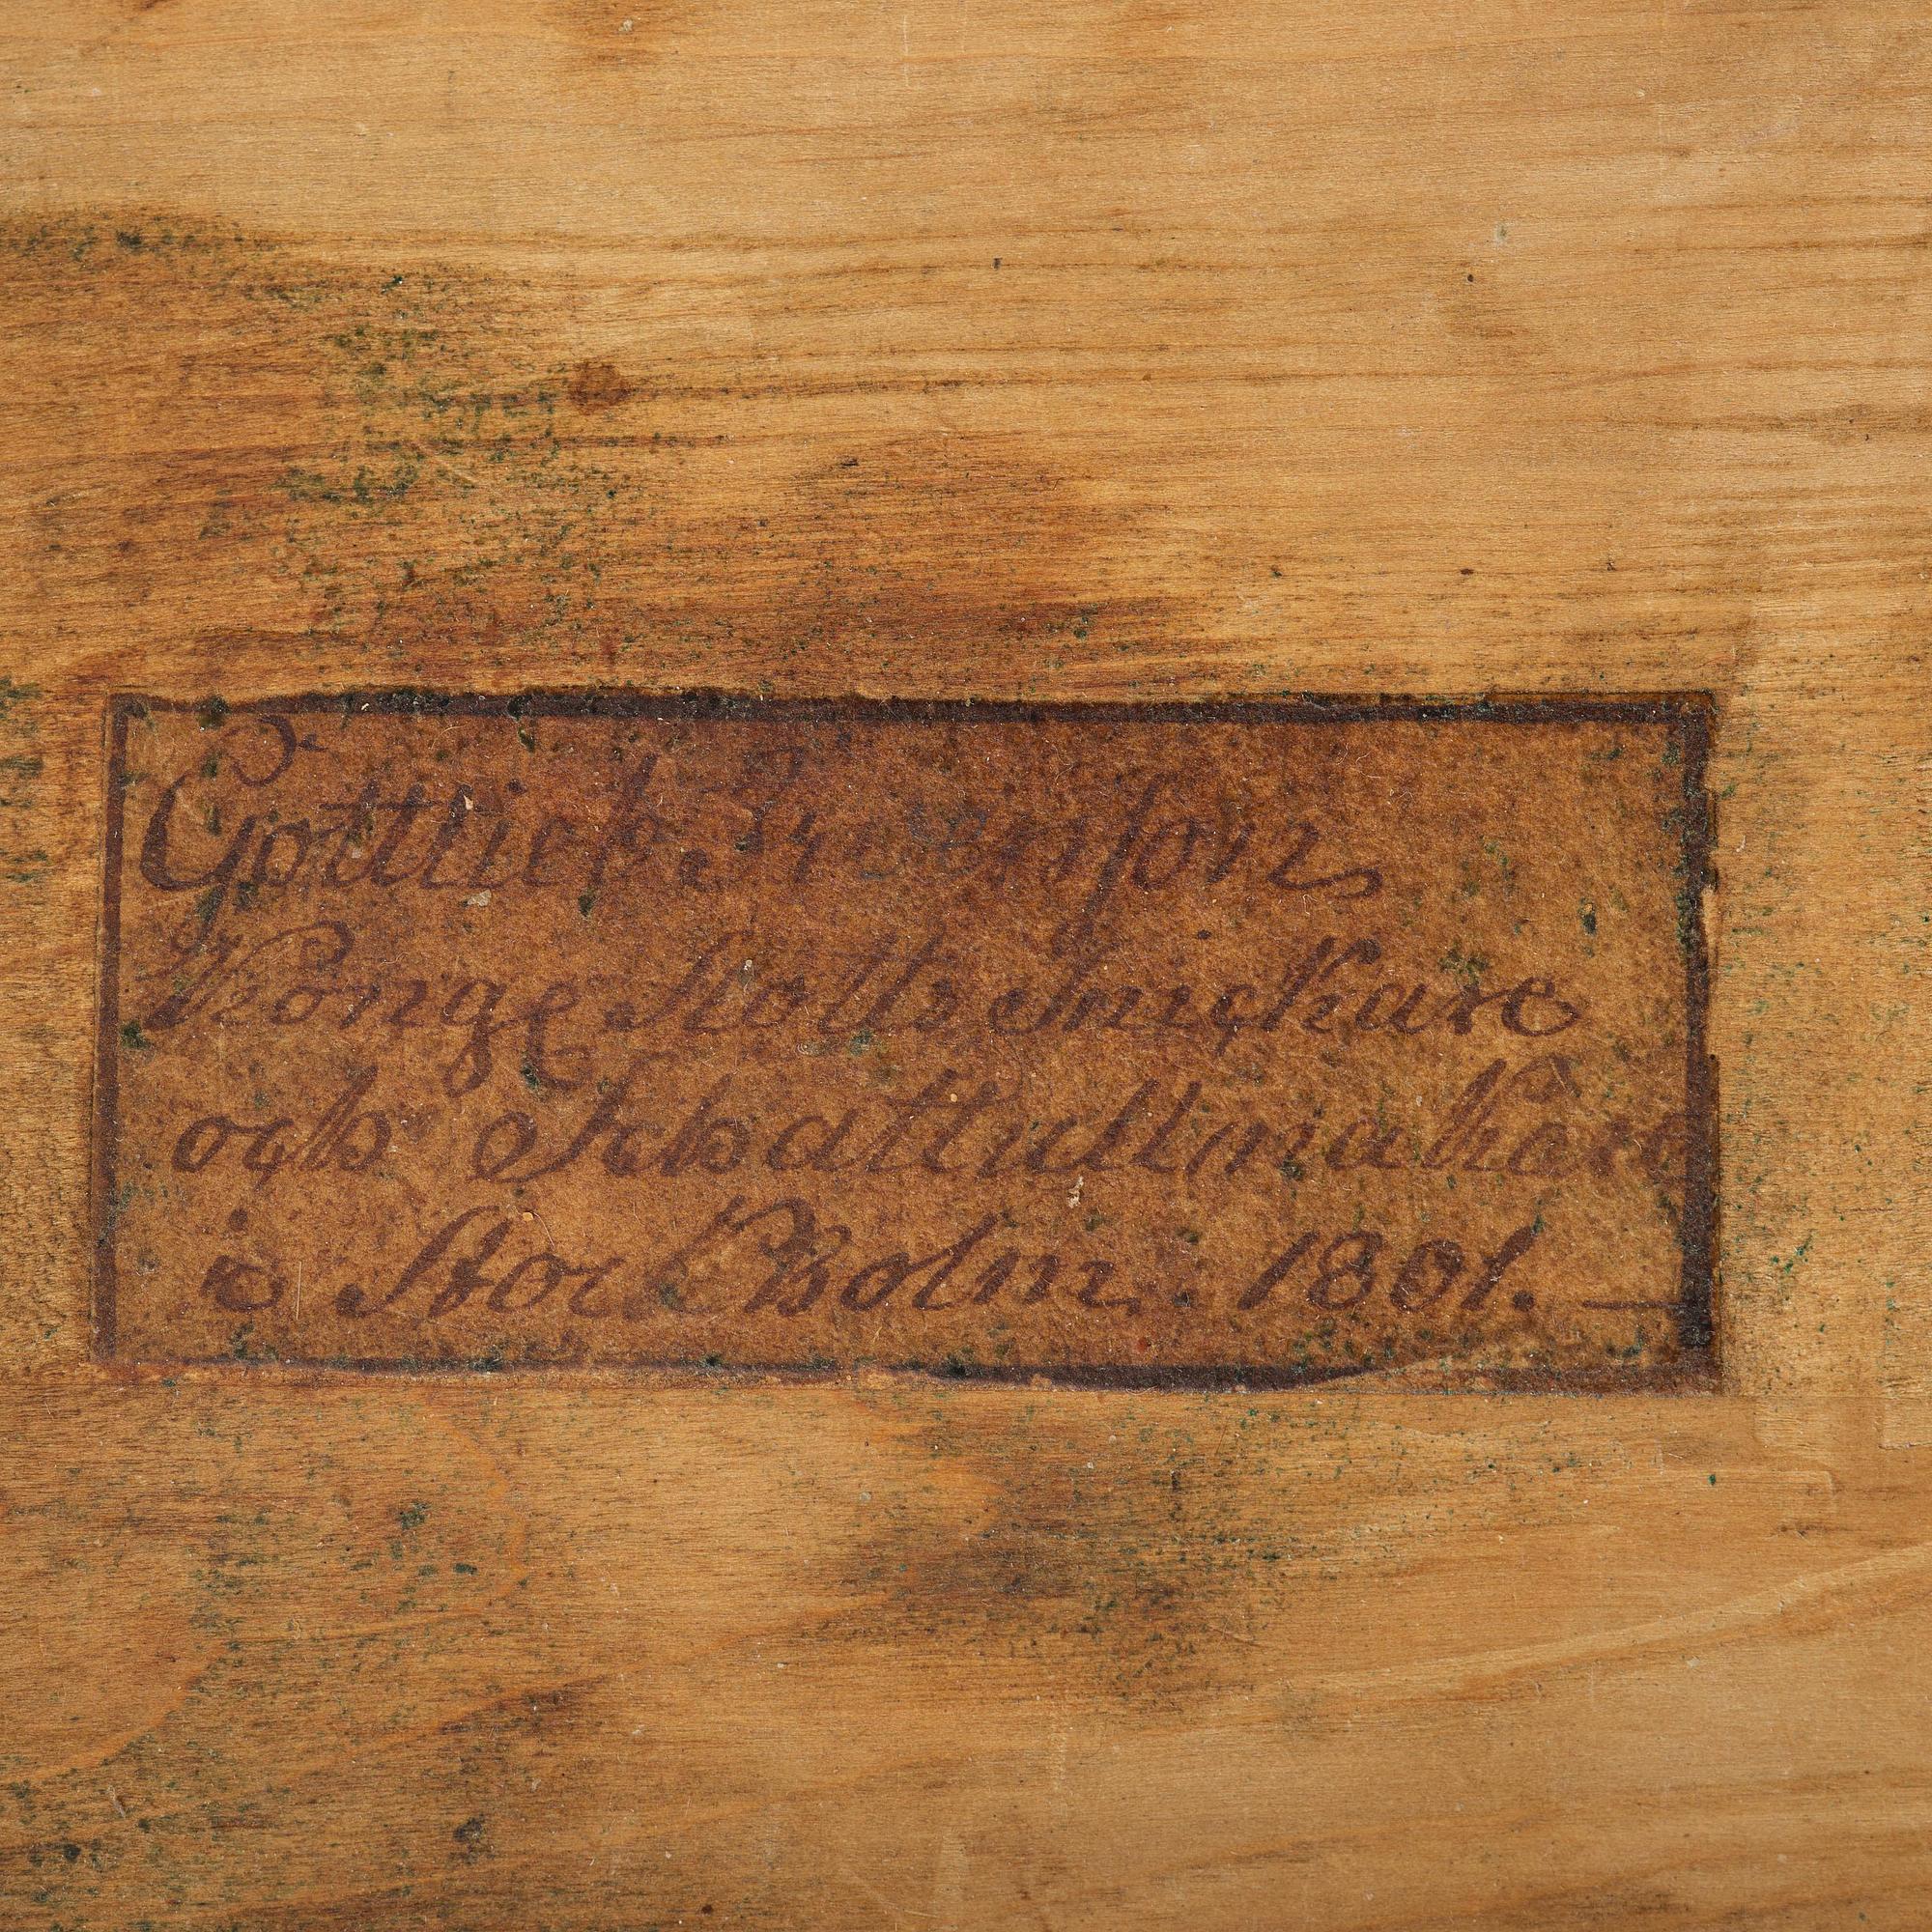 Gottlieb Iwersson,
Konge Slotts Snickare
och Schattullmakare
i Stockholm. 1801.